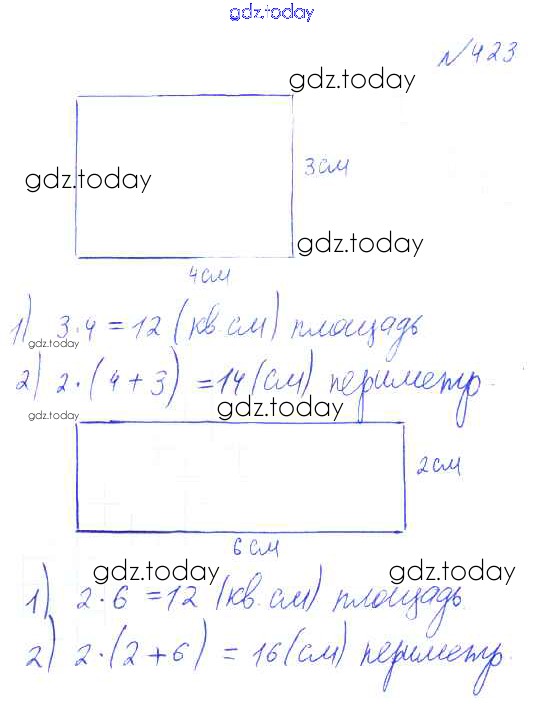 gdz.today
№423
gdz.today
3 см
gdz.today
gdz.today
4 см
1) 3·4 = 12 (кв.см) площадь
gdz.today
2) 2·(4+3) = 14 (см) периметр.
gdz.today
gdz.today
2 см
6 см
gdz.today
gdz.today
1) 2·6 = 12 (кв.см) площадь.
2) 2·(2+6) = 16 (см) периметр.